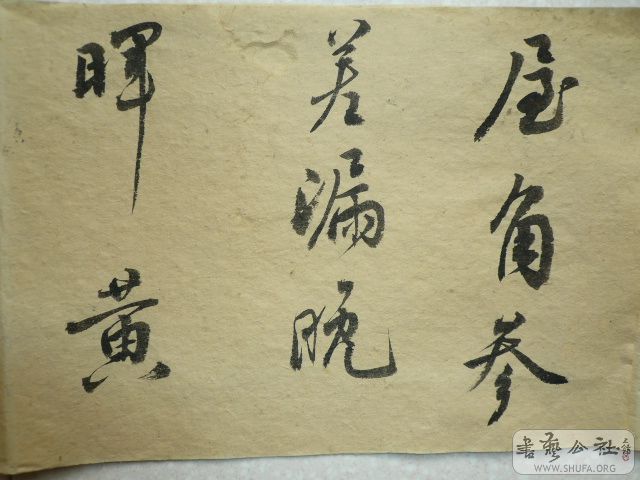 屋角参
差漏晚
暉黄
書藝公社
WWW.SHUFA.ORG